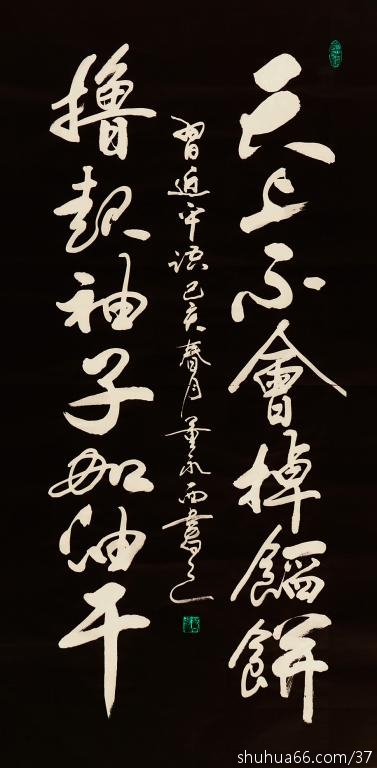 天上不會掉餡餅
擼起袖子加油干
習近平語己亥春月董永書之
shuhua66.com/37